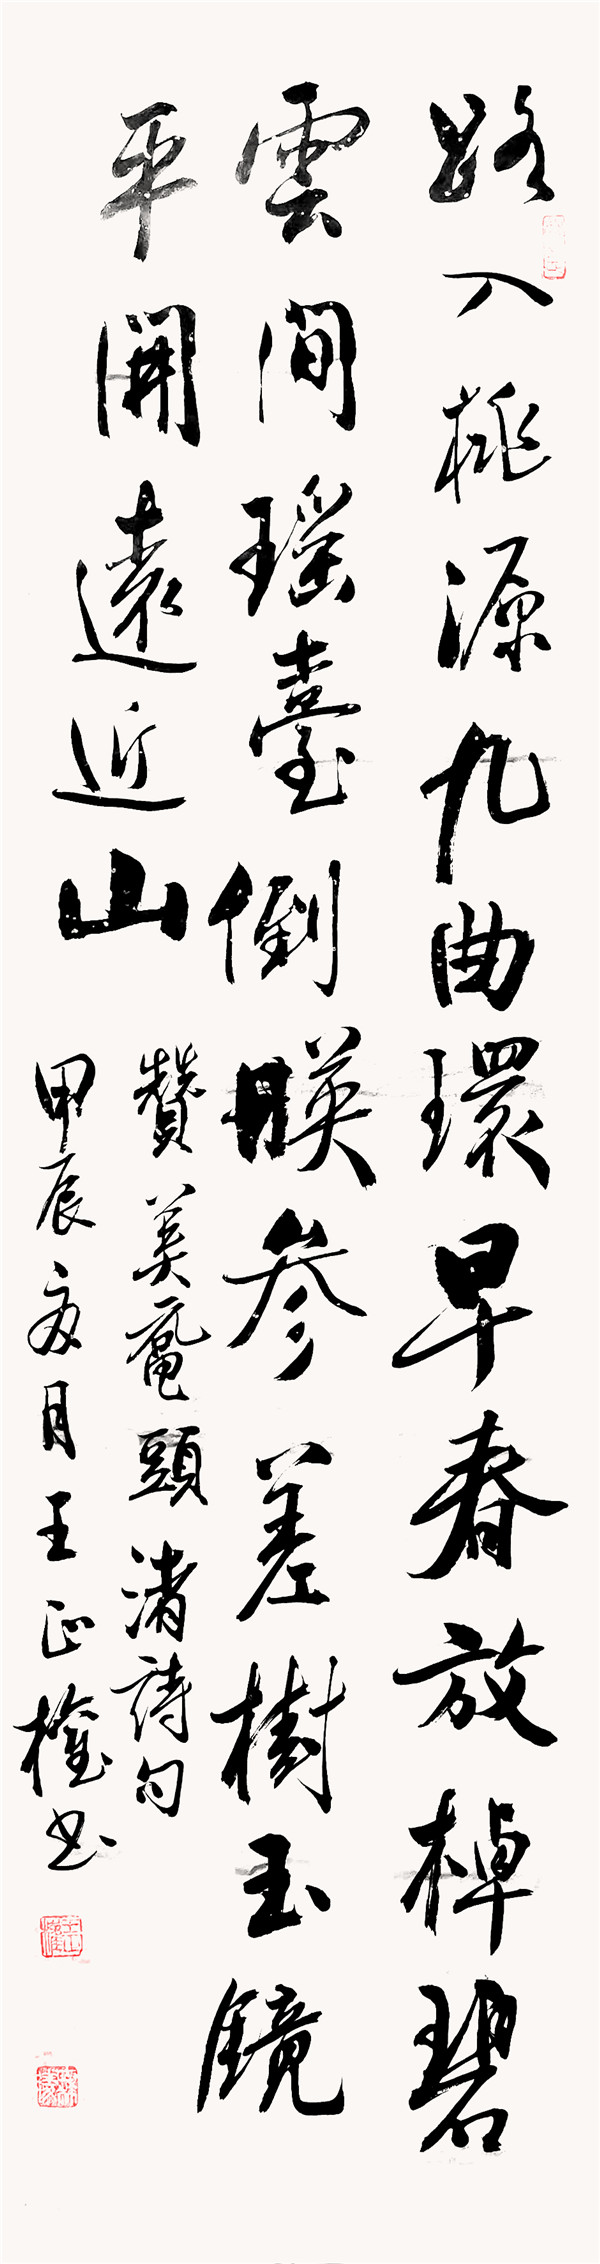 路入桃源九曲環早春放棹碧
雲間瑶臺倒暎參差樹玉鏡
平開遠近山
贊美黿頭渚詩句
甲辰夏月王正權書